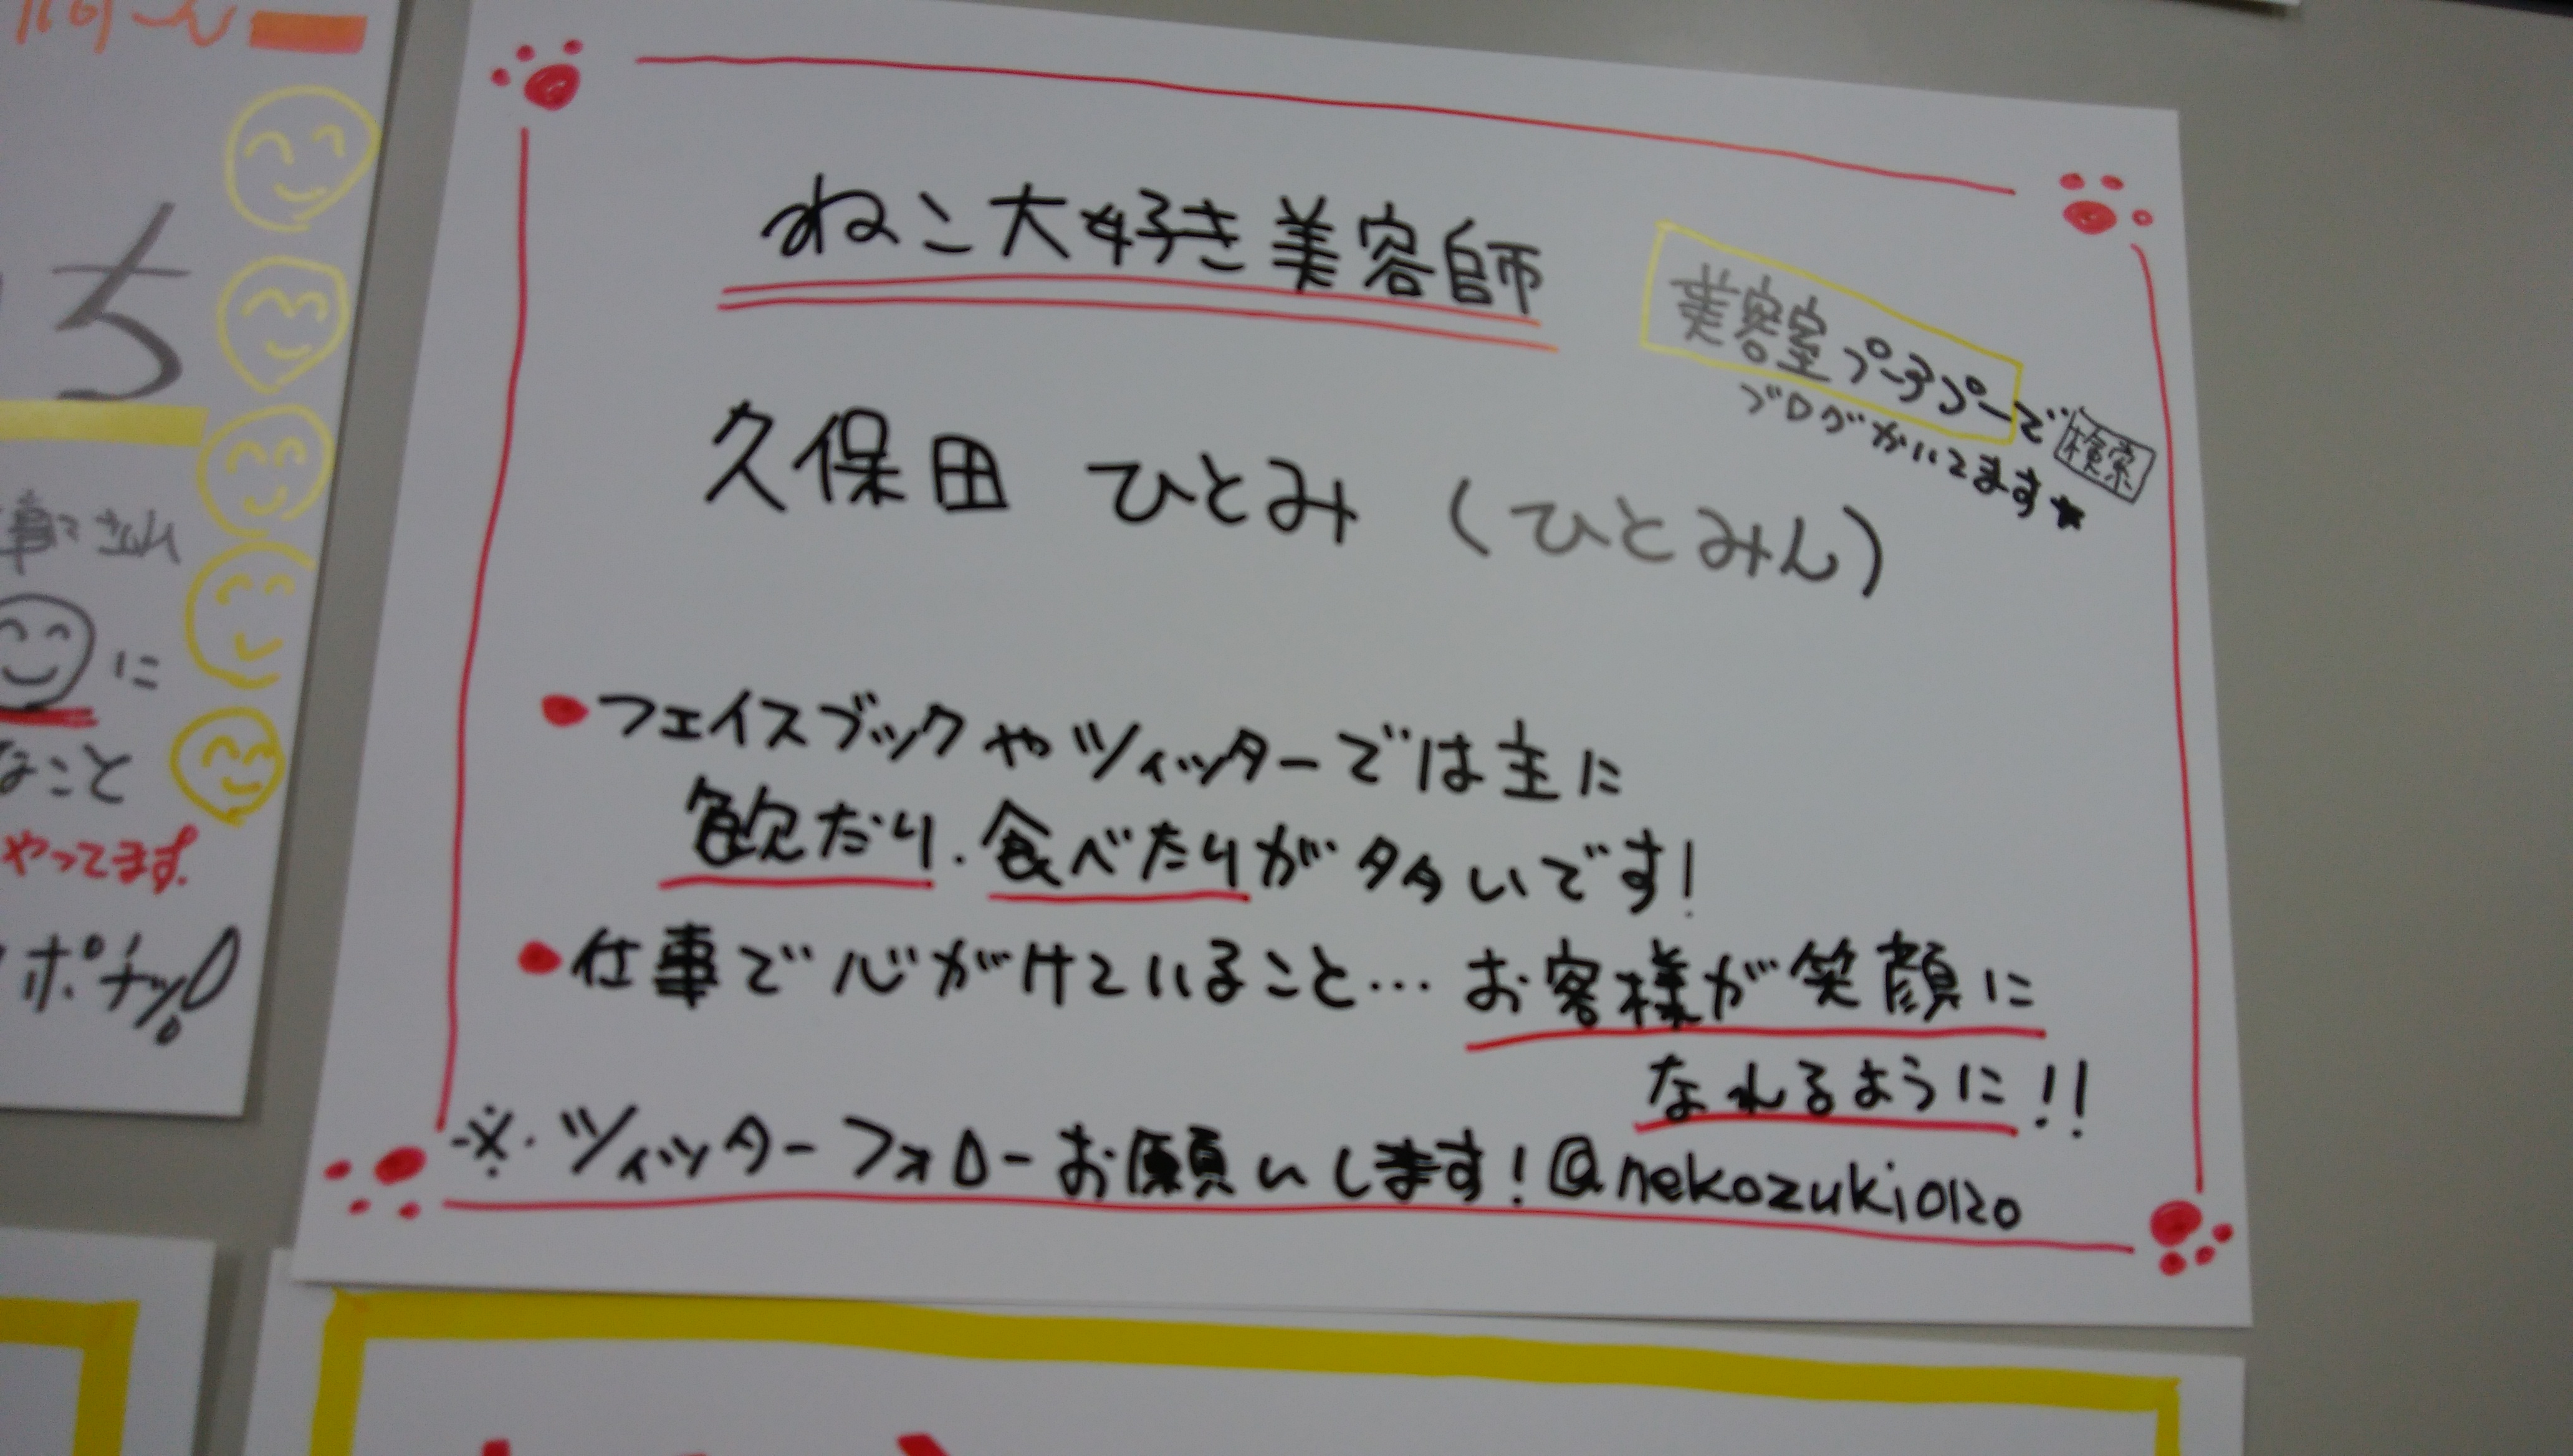 ねこ大好き美容師
美容室プーアプーで検索
ブログかいてます★
久保田 ひとみ (ひとみん)
・フェイスブックやツイッターでは主に
飲だり.食べたりが多いです!
・仕事で心がけていること…お客様が笑顔に
なれるように!!
※.ツイッターフォローお願いします!@nekozuki0120
ち
に
なこと
やってます.
ポチッ!